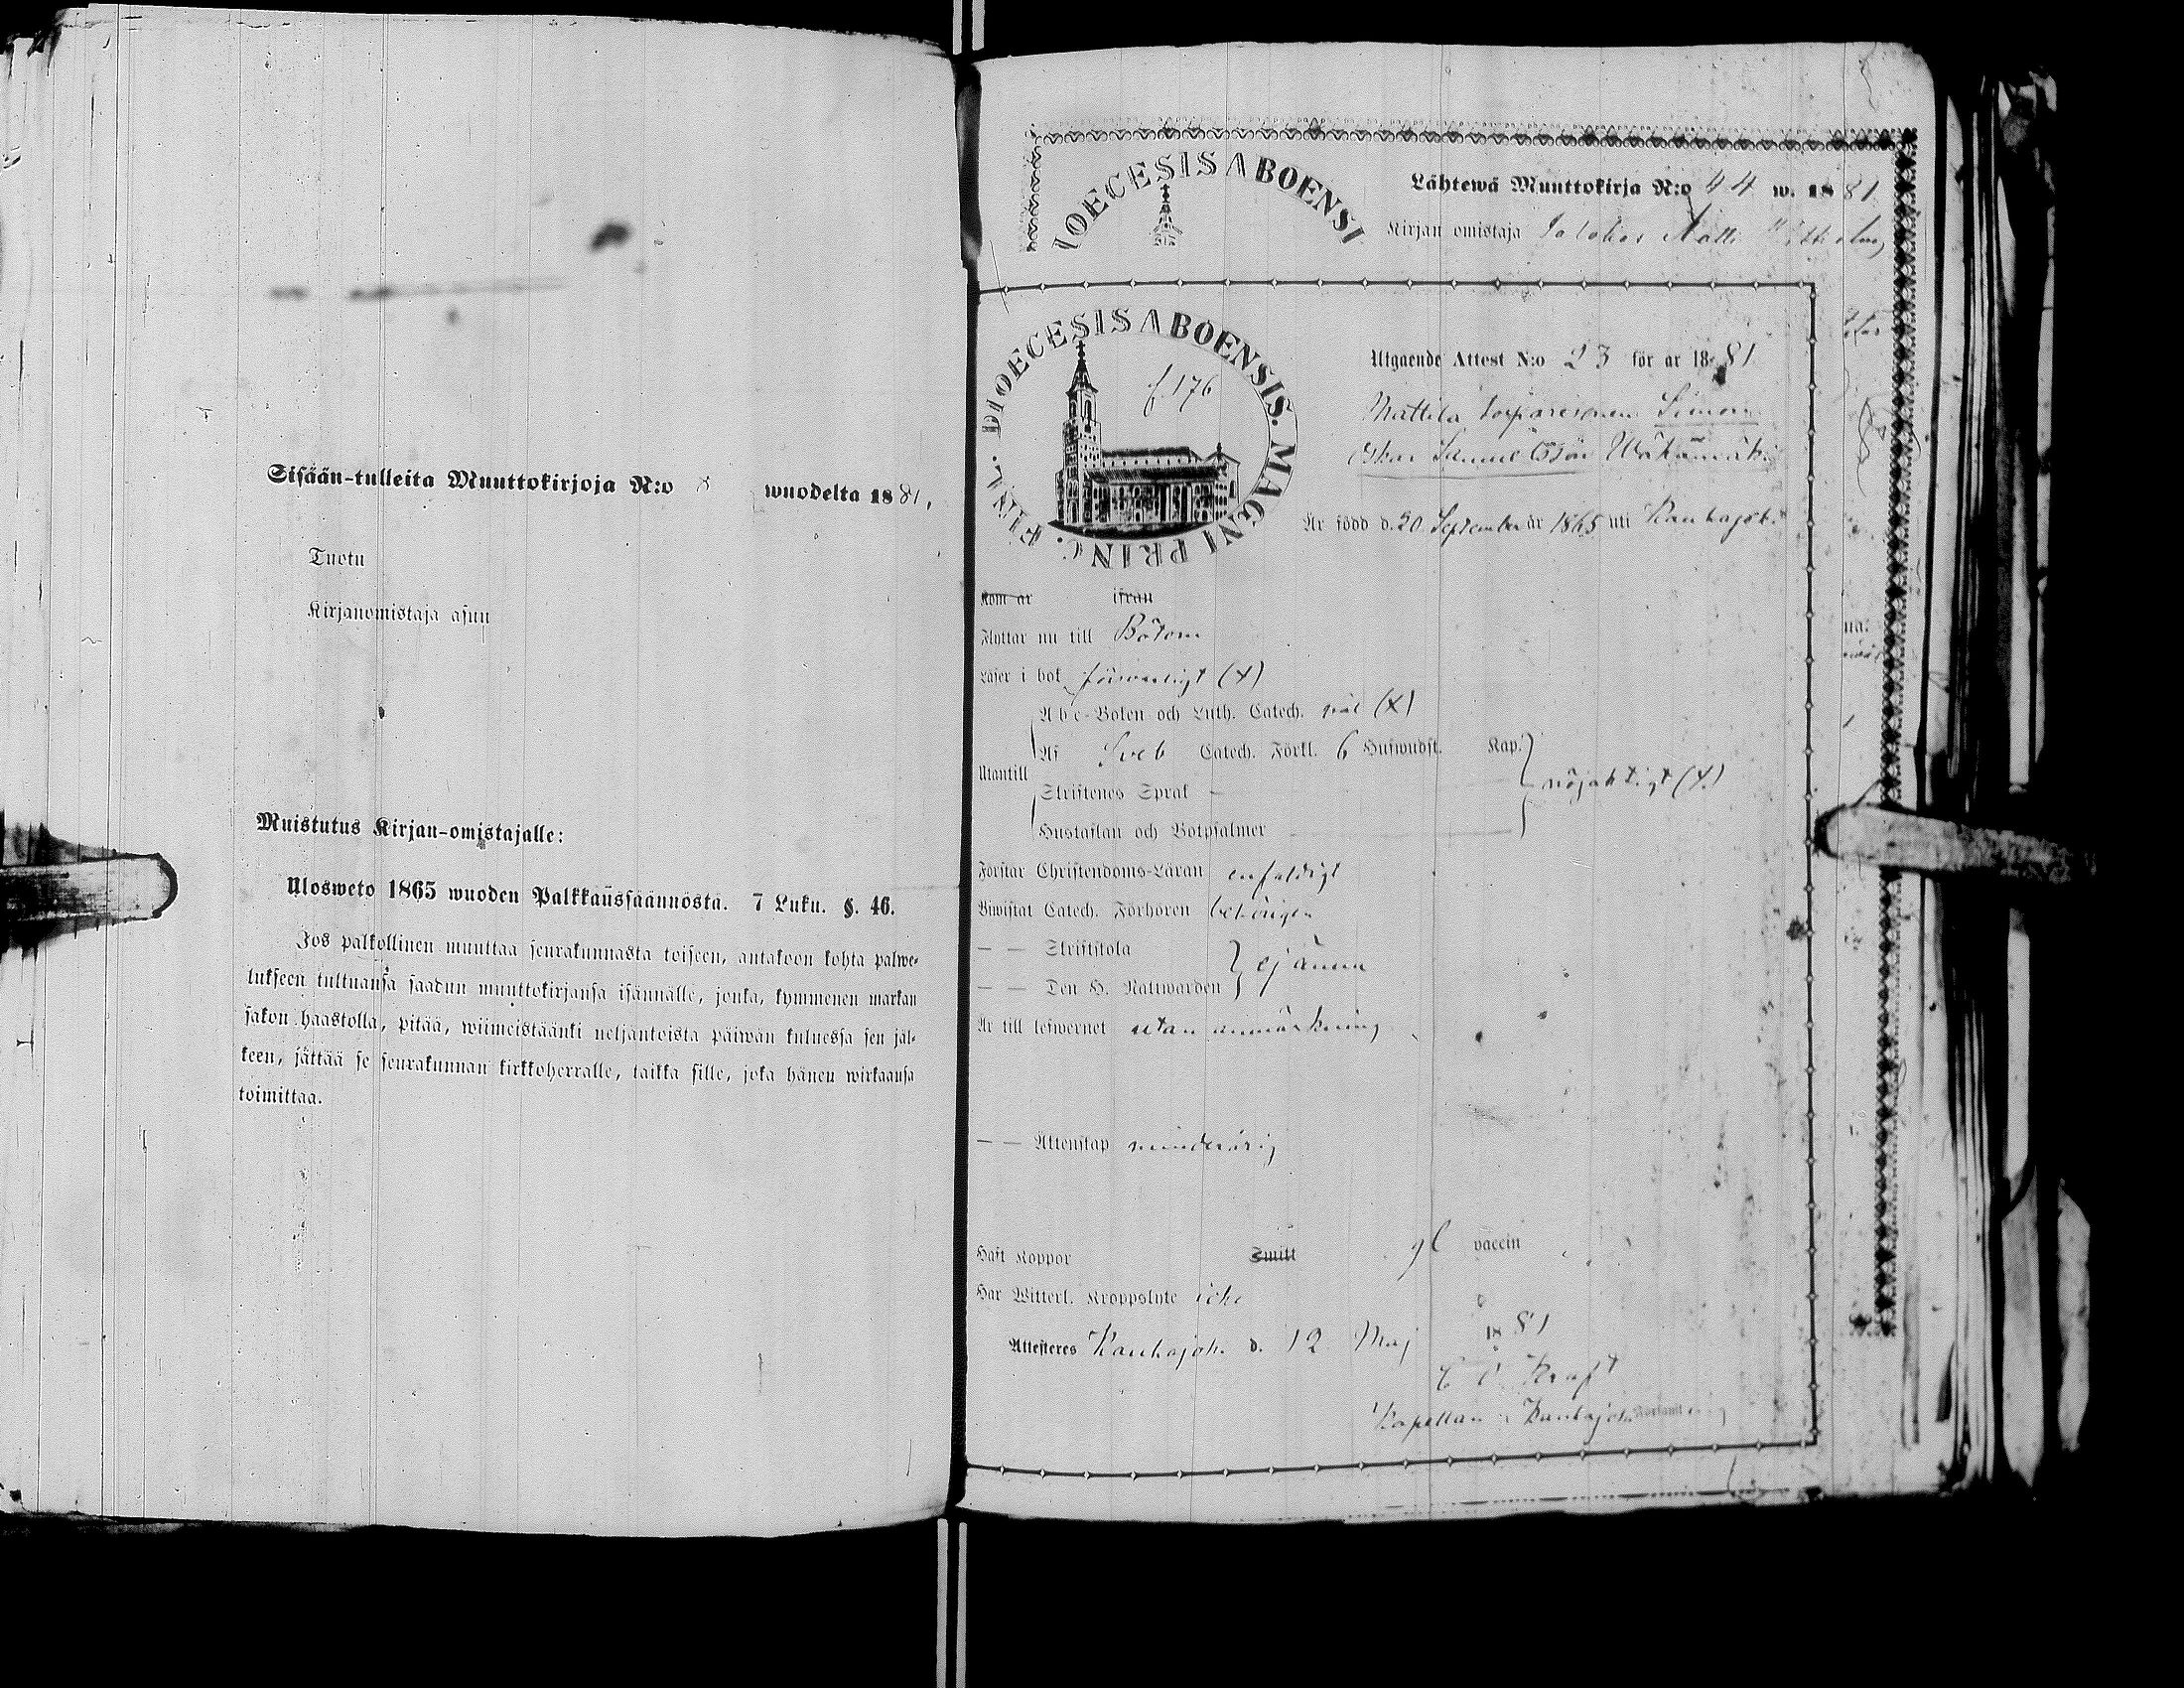 Sisään-tulleita Muuttokirjoja N:o 8 wuodelta 1881,
Tuotu
Kirjanomistaja asuu
Muistutus Kirjan-omistajalle:
Ulosweto 1865 wuoden Palkkaussäännöstä. 7 Luku. §. 46.
Jos palkollinen muuttaa seurakunnasta toiseen, antakoon kohta palwe-
lukseen tultuansa saadun muuttokirjansa isännälle, jonka, kymmenen markan
sakon haastolla, pitää, wiimeistäänki neljäntoista päiwän kuluessa sen jäl-
keen, jättää se seurakunnan kirkkoherralle, taikka sille, joka hänen wirkaansa
toimittaa.
IOECESIS ABOENSI
Lähtewä Muuttokirja N:o 44 w. 1881
Kirjan omistaja
DIOECESIS ABOENSIS. MAGNI PRINC. FINL.
f 176
Utgaende Attest N:o 23 för ar 1881
Mattila torparesonen Simon
Oskar Samuelsson
Är född d. 20 September år 1865 uti Kauhajoki
Kom ar ifran
Flyttar nu till Bötom
Läser i bok försvarligt (x)
Abc-Boken och Luth. Catech. väl (x)
Af Sveb Catech. Förkl. 6 Hufwudst. Kap.
Utantill
nöjaktigt (x)
Skriftenes Sprak
Hustaflan och Botpsalmer
Förstar Christendoms-Läran enfaldigt
Biwistat Catech. Förhören behörigen
— — Skriftskola
ej ännu
— — Den H. Nattwarden
Är till lefwernet utan anmärkning
— — Äktenskap minderårig
Haft Koppor Smitt gl vaccin
Har Witterl. Kroppslyte icke
Attesteres Kauhajoki d. 12 Maj 1881
Kraft
Kapellan i Kauhajoki